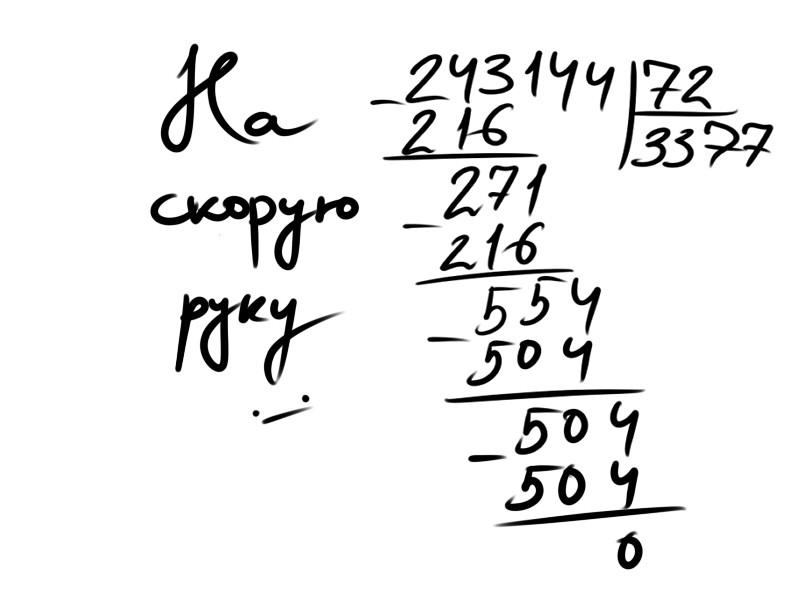 На
скорую
руку
243144 | 72
216 | 3377
271
- 216
554
- 504
504
- 504
0